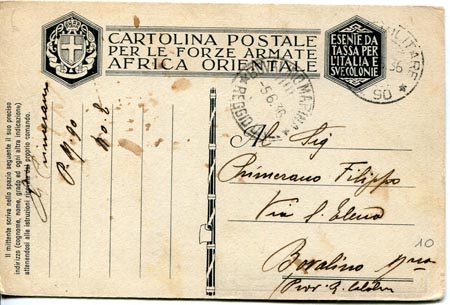 CARTOLINA POSTALE
PER LE FORZE ARMATE
AFRICA ORIENTALE
ESENTE DA
TASSA PER
L'ITALIA E
SVE COLONIE
MILITARE
36
* 90 *
MARINA
5.6.36
* REGGIO
Il mittente scriva nello spazio seguente il suo preciso
indirizzo (cognome, nome, grado ed ogni altra indicazione)
attenendosi alle istruzioni del proprio comando.
Primerano
P. M. 90
A. O. I.
Al Sig
Primerano Filippo
Via S. Elena
Bovalino Mna
Prov. R. Calabria
10